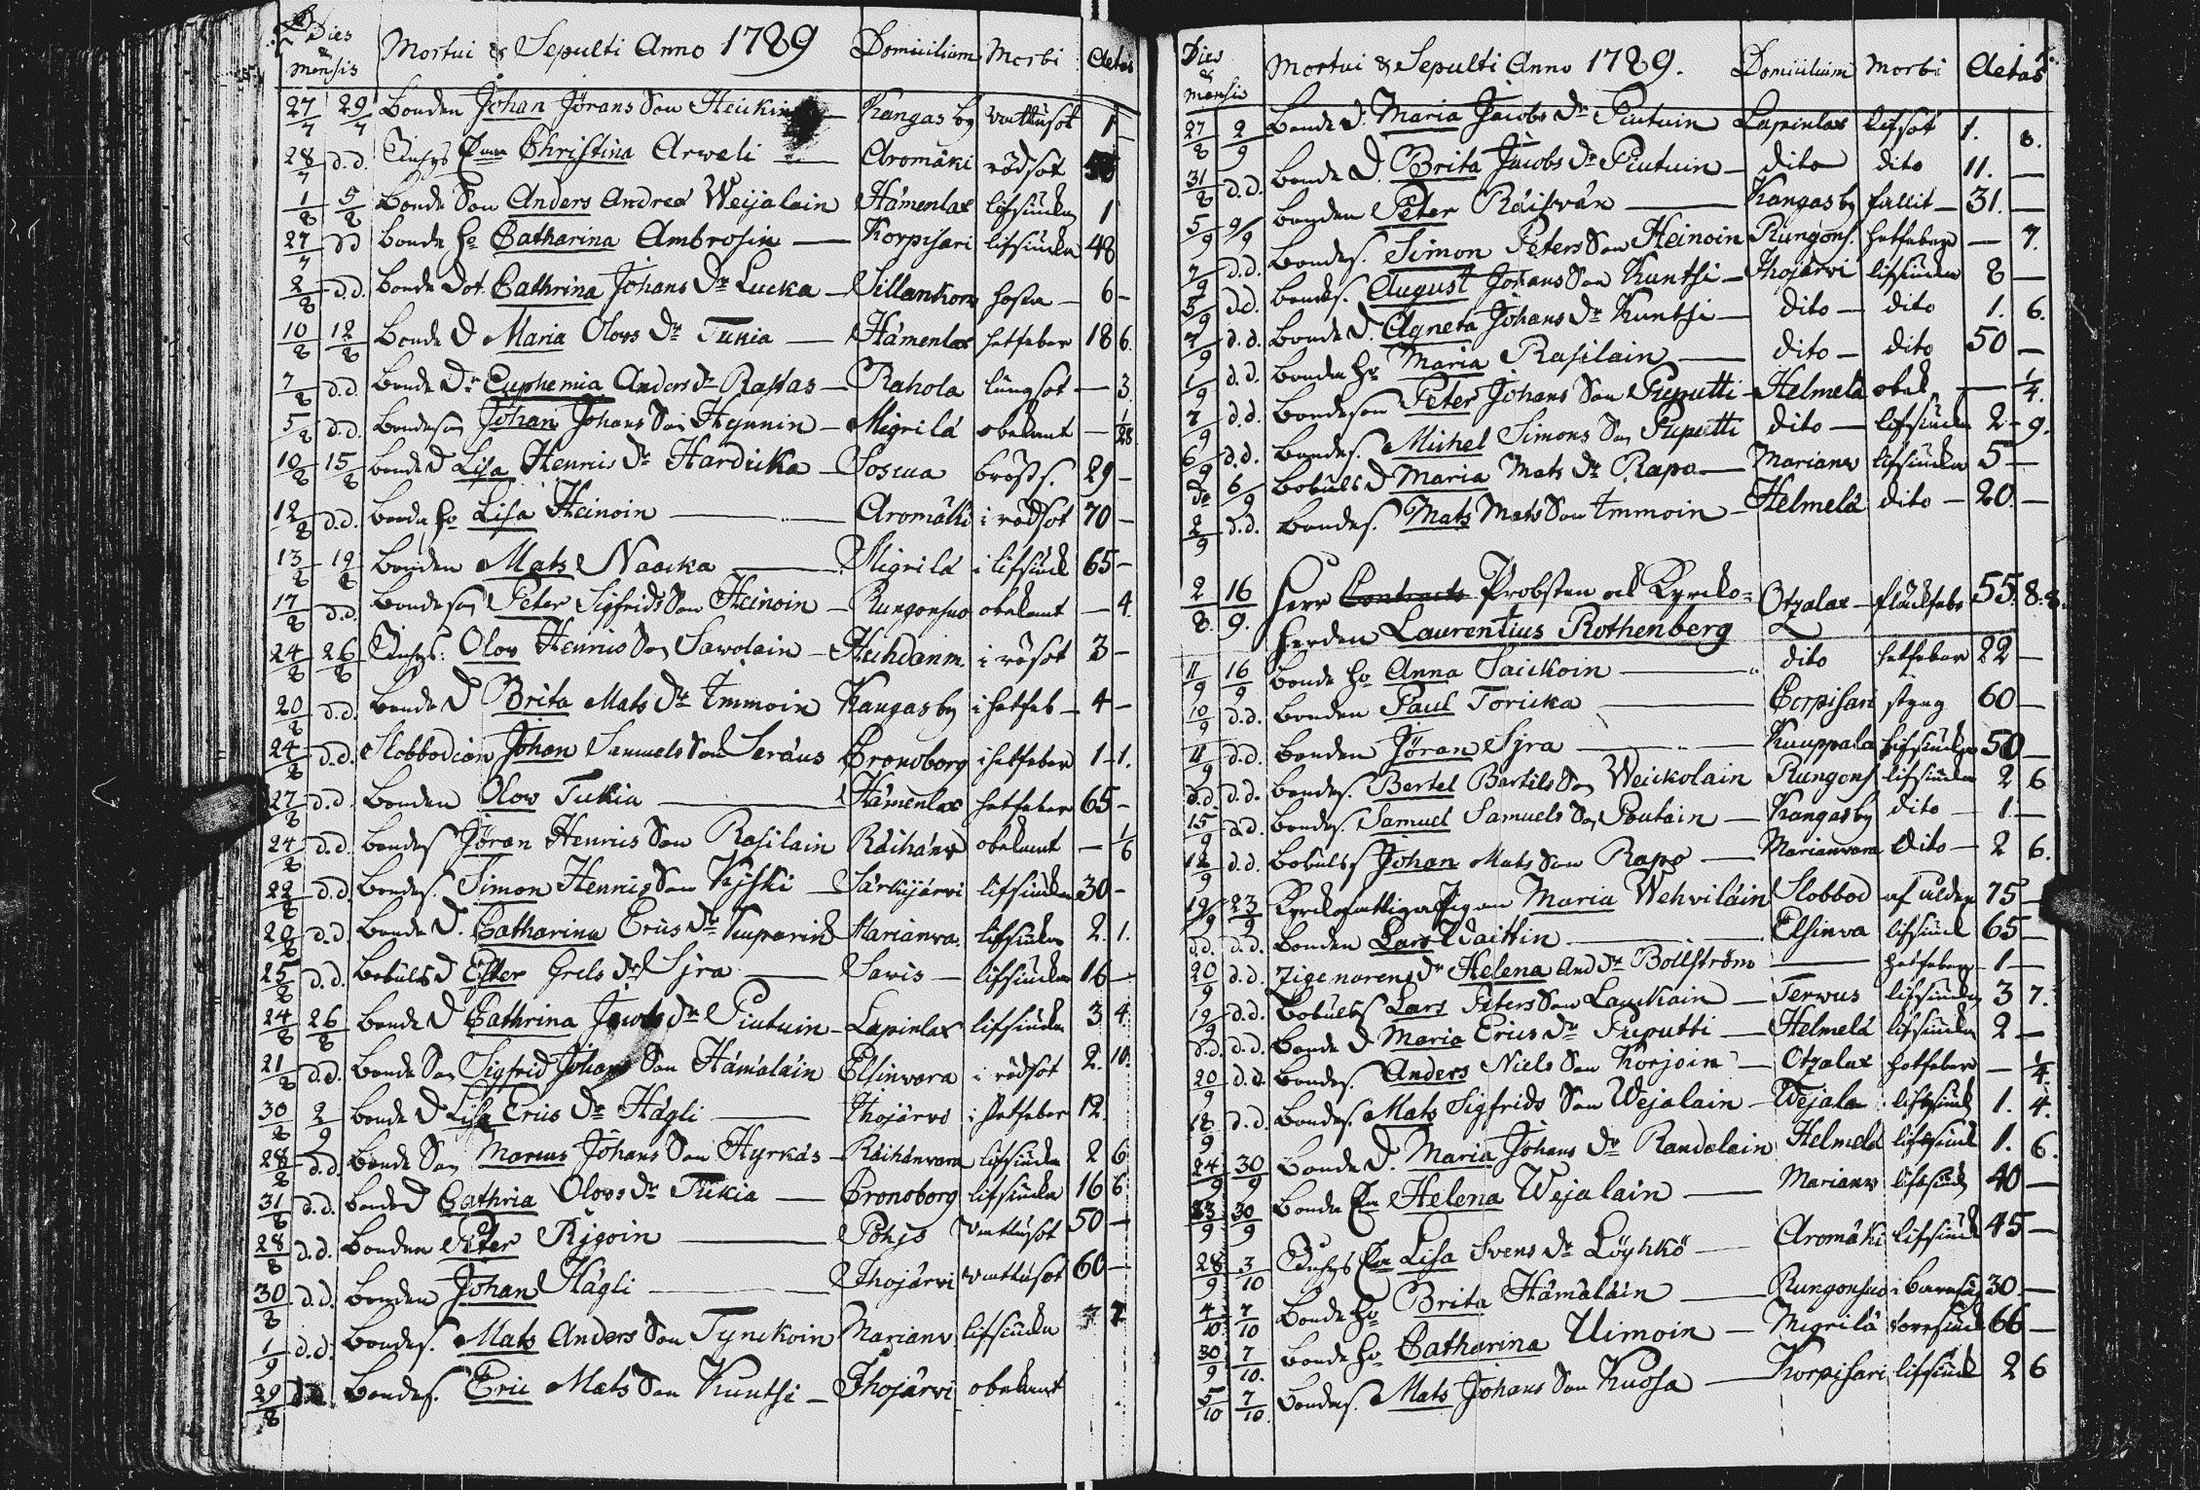 Dies & mensis Mortui & Sepulti Anno 1789 Domicilium Morbi Aetas
27/7 29/7 Bonden Johan Jörans Son Heickin Kangasby vattusot 1
28/7 d.d. Inhys Christina Arweli Aromäki rödsot
1/8 5/8 Bonde Son Anders Andreä Weijalain Hämenlax lifsiuka 1
27/7 dd Bonde ho Catharina Ambrosin Korpisari lifsiuka 48
2/8 d.d. Bonde Dot. Cathrina Johans Dr Lucka Sillankorv hosta 6 -
10/8 12/8 Bonde D Maria Olovs Dr Tukia Hämenlax hetfeber 18 6.
7/8 d.d Bonde Dr Euphemia Anders Dr Rapas Rahola lungsot - 3.
5/8 d.d. Bondeson Johan Johans Son Hynnin Migrilä obekant - 1/28
10/8 15/8 Bonde D Lisa Henrics Dr Hardicka Soscua bröst s. 29 -
12/8 d.d. Bonde ho Lisa Heinoin Aromäki i rödsot 70 -
13/8 19/8 Bonden Mats Naacka Migrilä i lifsiuk 65 -
17/8 d.d. Bondeson Peter Sigfrids Son Heinoin Rungonsuo obekant - 4.
24/8 26/8 Inhys: Olov Henrics Son Sawolain i rösot 3 -
20/8 d.d. Bonde D Brita Mats Dr Immoin Kangasby i hetfeb 4 -
24/8 d.d. Slobbodion Johan Samuels Son Seräus Cronoborg i hetfeber 1 - 1.
27/8 d.d Bonden Olov Tukia Hämenlax hetfeber 65 -
24/8 d.d. Bondes Jöran Henrics Son Rasilain Räihänv obekant - 1/6
22/8 d.d Bondes. Simon Henrics Son Kyski Särkijärvi lifsiuka 30 -
29/8 d.d Bonde D. Catharina Erics Dr Kuparin Marianva. lifsiuka 2. 1.
25/8 d.d. Bobuls D Ester Grels Dr Sjra Savis lifsiuka 16 -
24/8 26/8 Bonde D Cathrina Jacobs Dr Piutuin Lapinlax lifsiuka 3 4.
21/8 d.d. Bonde Son Sigfrid Johans Son Hämäläin Elsinvara i rödsot 2. 10.
30/8 2/9 Bonde D Lisa Erics Dr Hägli Ihojärvi i hetfeber 12.
28/8 d.d Bonde Son Marcus Johans Son Hyrkäs Räihänvara lifsiuka 2 6
31/8 d.d. Bonde D Cathria Olovs Dr Tukia Cronoborg lifsiuka 16 6
28/8 d.d. Bonden Peter Rjgoin Pohjs vattusot 50 -
30/8 d.d. Bonden Johan Hägli Ihojärvi vattusot 60 -
1/9 d.d. Bondes. Mats Anders Son Tynckoin Marianv. lifsiuka 7
29/8 Bondes. Eric Mats Son Kuntsi Ihojärvi obekant
Dies & mensis Mortui & Sepulti Anno 1789. Domicilium Morbi Aetas
27/8 2/9 Bonde D. Maria Jacobs Dr Piutuin Lapinlax lifsot 1. 8.
31/8 d.d. Bonde D. Brita Jacobs Dr Piutuin dito dito 11. -
5/9 9/9 Bonden Peter Räisvär Kangasby fallit 31. -
7/9 d.d. Bondes. Simon Peters Son Heinoin Rungons. hetfeber - 7.
5/9 dd. Bondes. August Johans Son Kuntsi Ihojärvi lifsiuka 8 -
7/9 d.d. Bonde D. Agneta Johans Dr Kuntsi dito dito 1. 6.
1/9 d.d. Bonden ho Maria Rasilain dito dito 50 -
7/9 d.d. Bondeson Peter Johans Son Puputti Helmelä obek - 1/4.
6/9 d.d. Bondes. Michel Simons Son Puputti dito lifsiuka 2 - 9.
do 6/9 Bobuls D Maria Mats Dr Rapo Marianv lifsiuka 5 -
2/9 d.d. Bondes. Mats Mats Son Immoin Helmelä dito 20. -
2/8. 16/9. Herr Contracts Probsten och Kyrcko=
Herden Laurentius Rothenberg Otzalax fläckfeb 55. 8. 8.
11/9 16/9 Bonde ho Anna Saickoin dito hetfeber 22 -
10/9 d.d. Bonden Paul Toricka Corpisari styng 60 -
11/9 d.d. Bonden Jöran Sjra Kuuppala lifsiuka 50 -
d.d. d.d. Bondes. Bertel Bertils Son Weickolain Rungons lifsiuka 2 6
15/9 d.d. Bondes. Samuel Samuels Son Poutain Kangasby dito 1. -
12/9 d.d. Bobuls S Johan Mats Son Rapo Marianvara dito 2 6.
19/9 23/9 Kyrkofattiga Pigan Maria Wehviläin Slobbod af ålder 75 -
d.d. d.d. Bonden Lars Waittin Elsinva lifsiuk 65 -
20/9 d.d. Zigenarens Dr Helena And Dr Bollström hetfeber 1 -
19/9 d.d. Bobuls S Lars Peters Son Lauckain Terwus lifsiuka 3 7.
d.d. d.d. Bonde D Maria Erics Dr Puputti Helmelä lifsiuka 2 -
20/9 d.d. Bondes. Anders Niels Son Korjoin Otzalax hetfeber - 1/4.
18/9 d.d. Bondes. Mats Sigfrids Son Wejalain Wejala lifsiuk 1. 4.
24/9 30/9 Bonde D. Maria Johans Dr Randalain Helmelä lifsiuk 1. 6.
23/9 30/9 Bonde Helena Wejalain Marianv lifsiuk 40 -
28/9 3/10 Inhys Lisa Svens Dr Löyhkö Aromäki lifsiuk 45 -
4/10 7/10 Bonde ho Brita Hämäläin Rungonsuo i barnsäng 30. -
30/9 7/10. Bonde ho Catharina Uimoin Migrilä 66 -
5/10 7/10. Bondes. Mats Johans Son Kuosa Korpisari lifsiuk 2 6